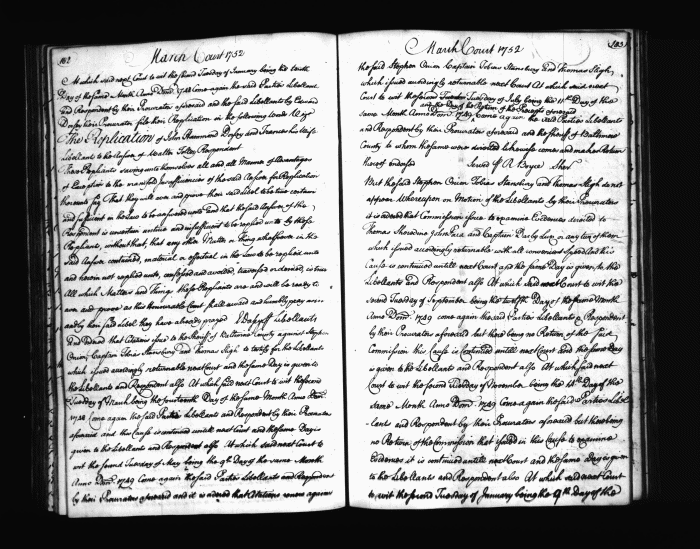 162
March Court 1752
At which said next Court to wit the third Tuesday of January being the tenth
Day of the same Month Anno Domi 1748 come again the said Parties Libellants
And Respondent by their Procurators aforesaid and the said Libellants by Edward
Dorsey their Procurator file their Replication in the following words to wit
The Replication of John Hammond Dorsey and Frances his wife
Libellant to the Answer of Walter Tolley Respondent
These Replyants saving unto themselves all and all Manner of Advantages
of Exception to the manifest Insufficiencies of the said Answer for Replication
thereunto say That they will aver and prove their said Libel to be true certain
and sufficient in the Law to be answered unto and that the said Answer of the
Respondent is uncertain untrue and insufficient to be replied unto by these
Replyants, without that, that any other Matter or Thing whatsoever in the
said Answer contained, material or effectual in the Law to be replied unto
and herein not replied unto, confessed and avoided, traversed or denied, is true
All which Matters and Things these Replyants are and will be ready to
aver and prove as this Honourable Court shall award and humbly pray as in
and by their said Libel they have already prayed Libellants
And Prayed that Citations issue to the Sheriff of Baltimore County against Stephen
Onion, Captain Tobias Stansbury and Thomas Sligh to testify for the Libellants
which issued accordingly returnable next Court and the same Day is given to
the Libellants and Respondent also At which said next Court to wit the second
Tuesday of March being the fourteenth Day of the same Month Anno Domi
1748 Come again the said Parties Libellants and Respondent by their Procurators
aforesaid and this Cause is continued untill next Court and the same Day is
given to the Libellants and Respondent also At which said next Court to
wit the second Tuesday of May being the 9th Day of the same Month
Anno Domi 1749 Come again the said Parties Libellants and Respondent
by their Procurators aforesaid and it is ordered that Citations renew against
163
March Court 1752
the said Stephen Onion Captain Tobias Stansbury and Thomas Sligh,
which issued accordingly returnable next Court At which said next
Court to wit the second Tuesday of July being the 11th Day of the
and the Day of the Return of the Process aforesaid
same Month Anno Domi 1749 Come again the said Parties Libellants
and Respondent by their Procurators aforesaid and the Sheriff of Baltimore
County to whom the same were directed likewise comes and makes Return
thereof endorsed Served R Boyce Sherf
But the said Stephen Onion Tobias Stansbury and Thomas Sligh do not
appear Whereupon on Motion of the Libellants by their Procurators
it is ordered that Commission issue to examine Evidences directed to
Thomas Sheredine John Paca and Captain Darby Lux or any two of them
which issued accordingly returnable with all convenient Speed And this
Cause is continued untill next Court and the same Day is given to the
Libellants and Respondent also At which said next Court to wit the
second Tuesday of September being the twelfth Day of the same Month
Anno Domi 1749 come again the said Parties Libellants & Respondent
by their Procurators aforesaid but there being no Return of the said
Commission this Cause is Continued untill next Court And the same Day
is given to the Libellants and Respondent also At which said next
Court to wit the second Tuesday of November being the 14th Day of the
same Month Anno Domi 1749 Come again the said Parties Libel
lants and Respondent by their Procurators aforesaid but there being
no Return of the Commission that issued in this Cause to examine
Evidences it is continued untill next Court and the same Day is given
to the Libellants and Respondent also At which said next Court
to wit the second Tuesday of January being the 9th Day of the